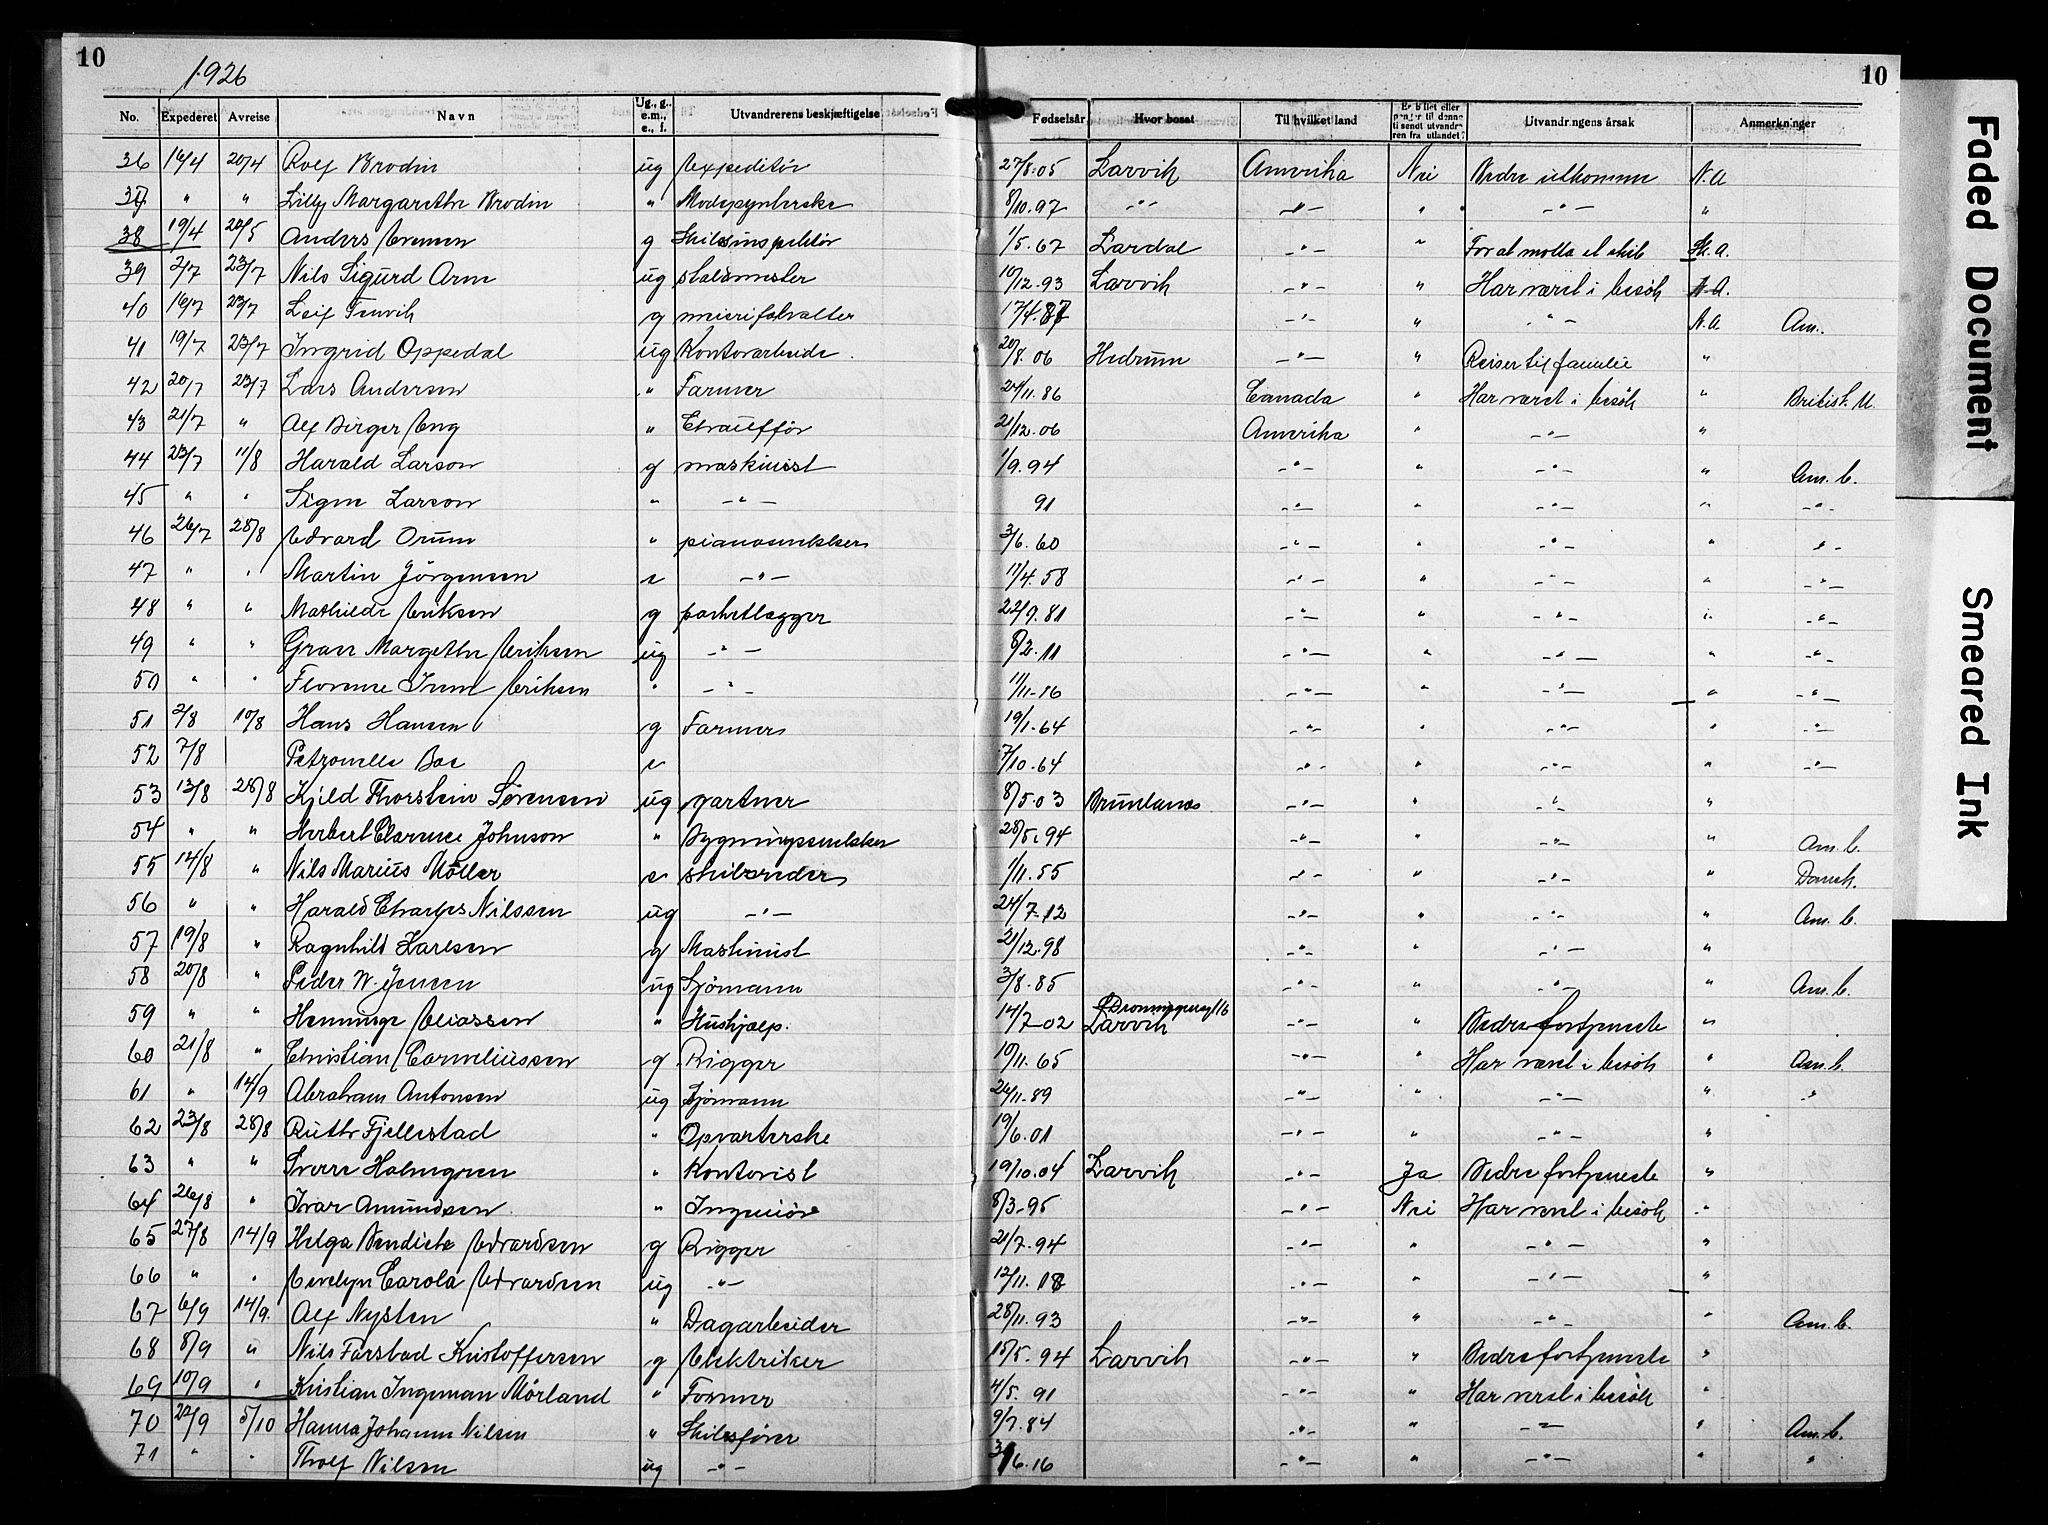 10
1926
10
No. Expederet Avreise Navn Ug., g., e.m., e., f. Utvandrerens beskjæftigelse Fødselsår Hvor bosat Til hvilket land Er billet eller penger til denne tilsendt utvandreren fra utlandet? Utvandringens årsak Anmerkninger
36 16/4 20/4 Rolf Brodin ug Expeditör 27/8.05 Larvik Amerika Nei Bedre utkomme N.A
37 " " Lilly Margarethe Brodin " Modepynterske 8/10.97 -"- -"- " -"- "
38 19/4 20/5 Anders Evensen g Skibsinspektör 1/5.67 Lardal -"- " For at motta et skib St. A.
39 2/7 23/7 Nils Sigurd Arm ug stalsmester 10/12.93 Larvik -"- " Har været i besök N.A.
40 16/7 23/7 Leif Tenvik g meieriforvalter 17/4.87 -"- " -"- N.A Am.
41 19/7 23/7 Ingrid Oppedal ug Kontorarbeide 20/8.06 Hedrum -"- " Reiser til familie "
42 20/7 23/7 Lars Andersen " Farmer 24/11.86 Canada " Har været i besök " British. U.
43 21/7 " Alf Birger Eng " Chaufför 21/12.06 Amerika " -"- "
44 23/7 11/8 Harald Larson g maskinist 1/9.94 -"- " -"- " Am. b.
45 " " Signe Larson " -"- 91 -"- " -"- " -"-
46 26/7 28/8 Edvard Orum " pianosnekker 3/6.60 -"- " -"- " -"-
47 " " Martin Jörgensen e -"- 11/4.58 -"- " -"- " -"-
48 " " Mathilde Eriksen g parketlegger 22/9.81 -"- " -"- " -"-
49 " " Grace Margethe Eriksen ug -"- 8/2.11 -"- " -"- " -"-
50 " " Florence Irene Eriksen " -"- 11/11-16 -"- " -"- " -"-
51 2/8 10/8 Hans Hansen g Farmer 19/1.64 -"- " -"- " -"-
52 7/8 Petronelle Boe e 7/10.64 -"- " -"- " -"-
53 13/8 28/8 Kjeld Thorstein Sørensen ug gartner 8/5.03 Brunlanes -"- " -"- "
54 " " Herbert Clarence Johnson " Bygningssnekker 28/5.94 -"- " -"- " Am. b.
55 14/8 " Nils Marius Möller e skibsreder 1/11.55 -"- " -"- " Dansk.
56 " " Harald Charles Nilssen ug -"- 24/7-12 -"- " -"- " Am. b.
57 19/8 " Ragnhild Karlsen g Maskinist 21/12.98 -"- " -"- "
58 20/8 " Peder W. Jensen ug Sjömann 3/8.85 -"- " -"- " Am. b.
59 " " Henninge Eliassen " Hushjælp. 14/7-02 Dronningensg 16 Larvik -"- " Bedre fortjeneste "
60 21/8 " Christian Corneliussen g Rigger 10/11.65 -"- " Har været i besök " Am. b.
61 " 14/9 Abraham Antonsen ug Sjömann 26/11-89 -"- " -"- " "
62 23/8 28/8 Ruth Fjellestad " Opvarterske 19/6.01 -"- " -"- "
63 " " Sverre Holmgren " Kontorist 19/10.04 Larvik -"- Ja Bedre fortjeneste "
64 26/8 " Ivar Amundsen " Ingeniör 8/3-95 -"- Nei Har været i besök "
65 27/8 14/9 Helga Bendicte Edvardsen g Rigger 21/7.94 -"- " -"- "
66 " " Evelyn Carola Edvardsen ug -"- 12/11.18 -"- " -"- "
67 6/9 14/9. Alf Nysten " Dagarbeider 28/11.93 -"- " -"- " Am. b.
68 8/9 " Nils Farstad Kristoffersen g Elektriker 15/5.94 Larvik -"- " Bedre fortjeneste "
69 10/9 " Kristian Ingeman Mörland " Farmer 4/5.91 -"- " Har været i besök "
70 22/9 5/10 Hanna Johanne Nilsen " Skibsfører 9/7.84 -"- " -"- " Am. b.
71 " " Throlf Nilsen ug -"- 3/6.16 -"- " -"- " "
Faded Document
Smeared Ink